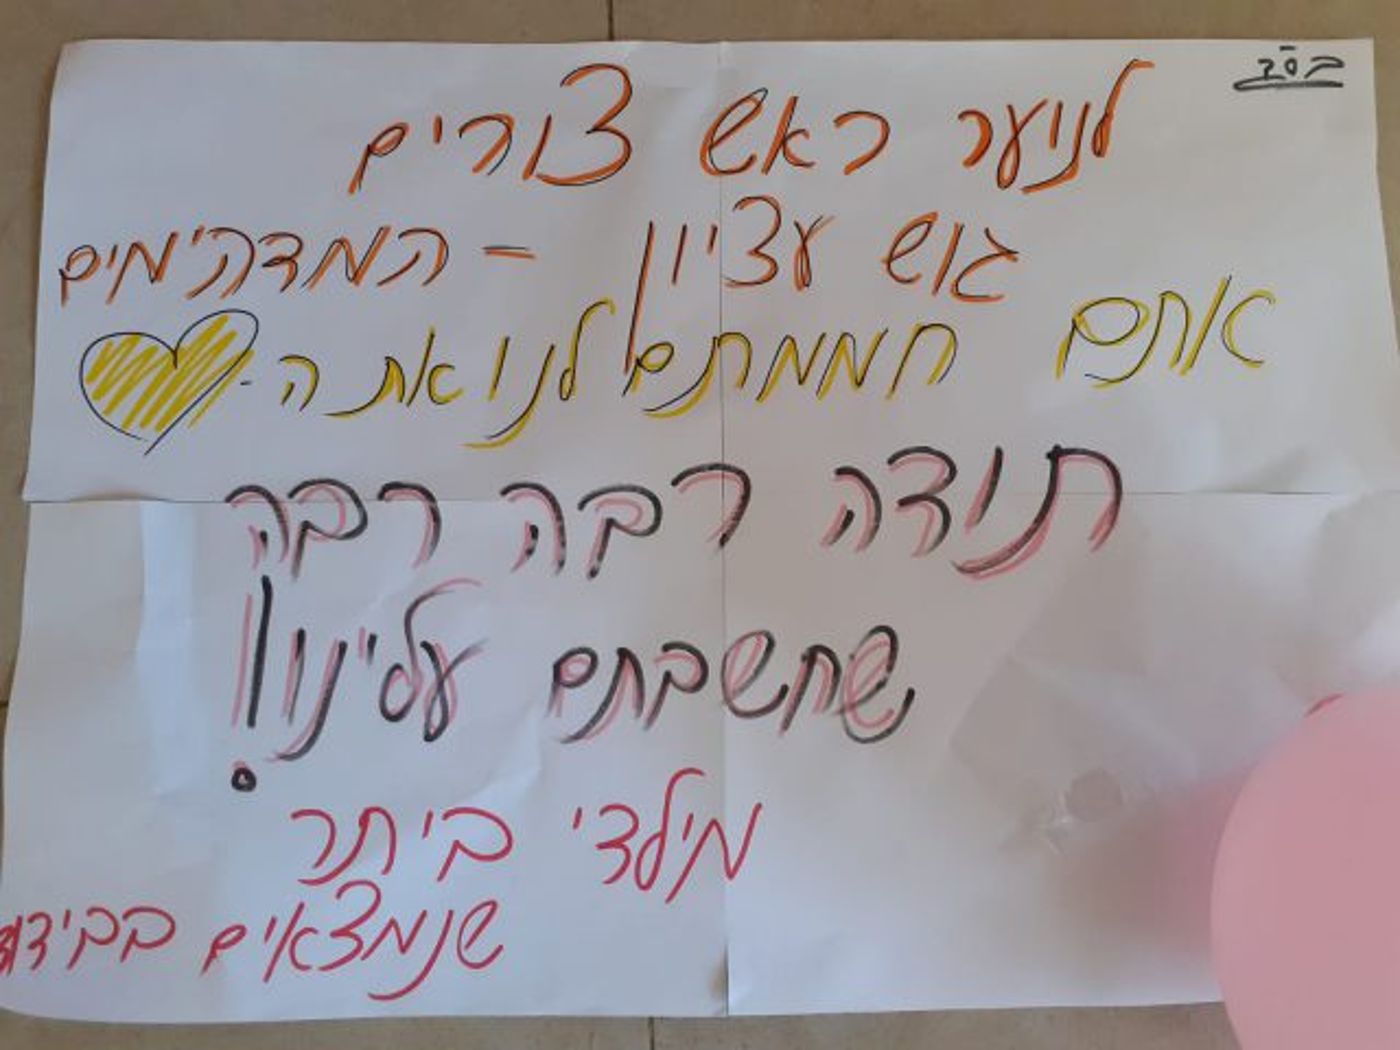 בס"ד
לנוער ראש צורים
גוש עציון - המדהימים
אתם חממתם לנו את ה-
תודה רבה רבה
שחשבתם עלינו!
מילדי ביתר
שנמצאים בבידוד